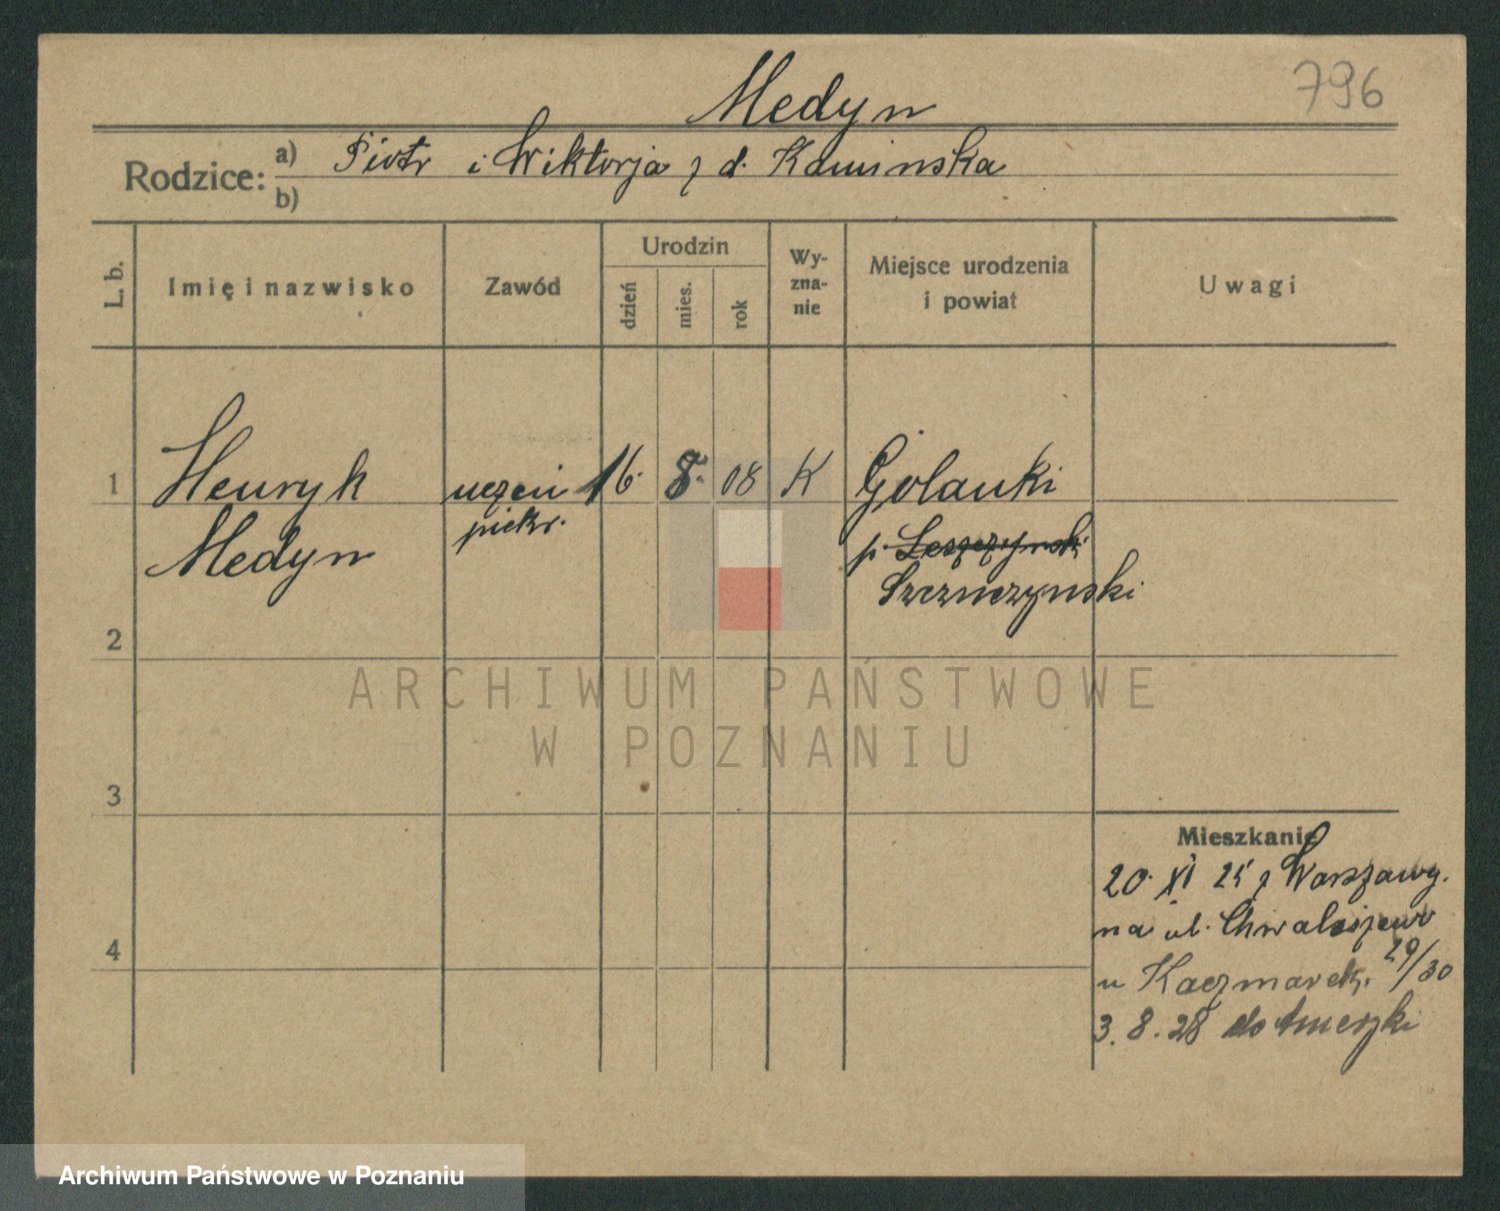 Medyn
796
Rodzice: a) Piotr i Wiktorja z d. Kaminska
b)
L. b.
Imię i nazwisko
Zawód
Urodzin
dzień
mies.
rok
Wy-
zna-
nie
Miejsce urodzenia
i powiat
Uwagi
1 Henryk uczeń 16. 8. 08 K Golanki
Medyn piekr. p. Leszczynski
Szczuczynski
2
3
4
Mieszkanie
20. XI 25 z Warszawy.
na ul. Chwaliszewo
u Kaczmarek. 29/30
3. 8. 28 do Ameryki
ARCHIWUM PAŃSTWOWE
W POZNANIU
Archiwum Państwowe w Poznaniu